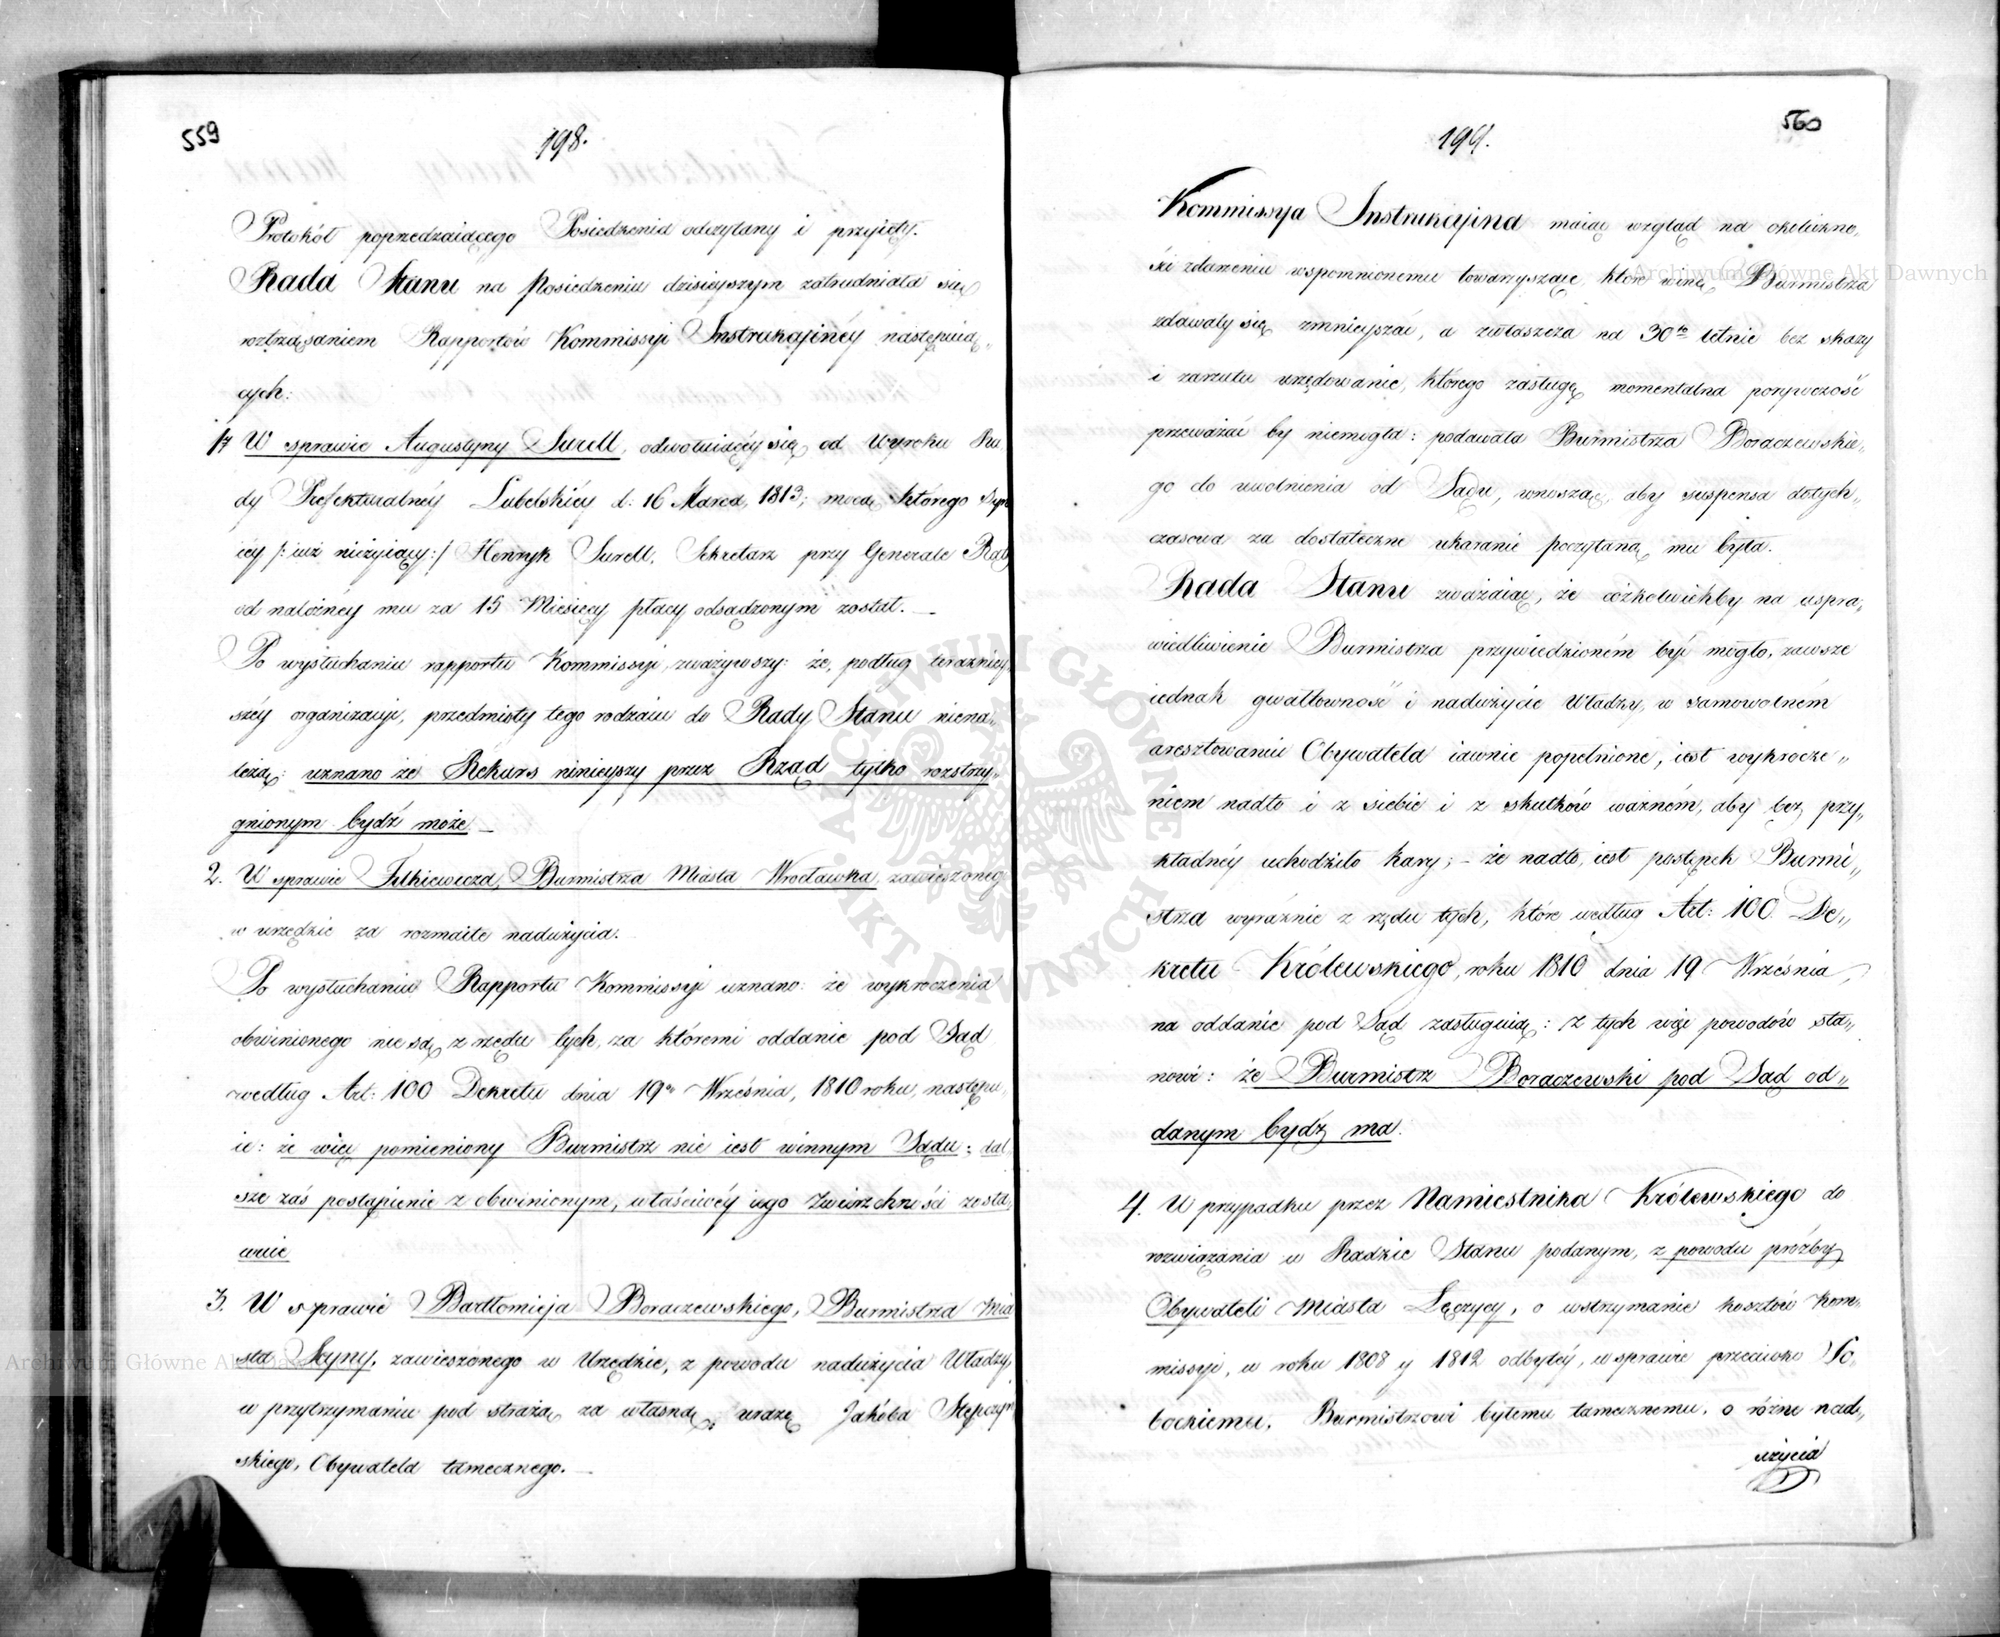 559
198.
Protokół poprzedzaiącego Posiedzenia odczytany i przyięty.
Rada Stanu na Posiedzeniu dzisieyszym zatrudniała się
roztrząsaniem Rapportów Kommissyi Instrukcyinéy następuią„
cych:
1. W sprawie Augustyny Surell, odwołuiącéy się od Wyroku Ra„
dy Prefekturalnéy Lubelskiéy d: 16 Marca, 1813; mocą którego Syn
iéy /: iuż nieżyiący :/ Henryk Surell, Sekretarz przy Generale
od należnéy mu za 15 Miesięcy płacy odsądzonym został. —
Po wysłuchaniu rapportu Kommissyi, zważywszy: że, podług teraźniey„
széy organizacyi, przedmioty tego rodzaiu do Rady Stanu niena„
leżą: uznano że Rekurs ninieyszy przez Rząd tylko rozstrzy„
gnionym bydź może —
2. W sprawie Burmistrza Miasta Wrocławka, zawieszoneg
w urzędzie za rozmaite nadużycia.
Po wysłuchaniu Rapportu Kommissyi uznano: że wykroczenia
obwinionego nie są z rzędu tych, za któremi oddanie pod Sąd
według Art: 100 Dekretu dnia 19go Września, 1810 roku, następu„
ie: że więc pomieniony Burmistrz nie iest winnym Sądu; dal„
sze zaś postąpienie z obwinionym, właściwéy iego Zwierzchności zosta„
wuie
3. W sprawie Bartłomieja Boraczewskiego, Burmistrza Mia
sta Seyny, zawieszonego w Urzędzie, z powodu nadużycia Władzy,
w przytrzymaniu pod strażą za własną urazę Jakóba Stępczyń
skiego, Obywatela tamecznego. —
560
199.
Kommissya Instrukcyina maiąc wzgląd na okoliczno„
ści zdarzeniu wspomnionemu towarzyszące, które winę Burmistrza
zdawały się zmnieyszać, a zwłaszcza na 30to letnie bez skazy
i zarzutu urzędowanie, którego zasługę momentalna porywczość
przeważać by niemogła: podawała Burmistrza Boraczewskie„
go do uwolnienia od Sądu, wnosząc, aby suspensa dotych„
czasowa za dostateczne ukaranie poczytaną mu była.
Rada Stanu zważaiąc, że cożkolwiekby na uspra„
wiedliwienie Burmistrza przywiedzioném być mogło, zawsze
iednak gwałtowność i nadużycie Władzy, w samowolném
aresztowaniu Obywatela iawnie popełnione, iest wykrocze„
niem nadto i z siebie i z skutków ważném, aby bez przy„
kładnéy uchodziło kary; — że nadto, iest postępek Burmi„
strza wyraźnie z rzędu tych, które według Art: 100 De„
kretu Królewskiego, roku 1810 dnia 19 Września,
na oddanie pod Sąd zasługuią: z tych więc powodów sta„
nowi: że Burmistrz Boraczewski pod Sąd od„
danym bydź ma.
4. W przypadku przez Namiestnika Królewskiego do
rozwiązania w Radzie Stanu podanym, z powodu proźby
Obywateli Miasta Łęczycy, o wstrzymanie kosztów Kom„
missyi, w roku 1808 y 1812 odbytéy, w sprawie przeciwko So„
bockiemu, Burmistrzowi byłemu tamecznemu, o różne nad„
użycia
Archiwum Główne Akt Dawnych
ARCHIWUM GŁÓWNE AKT DAWNYCH